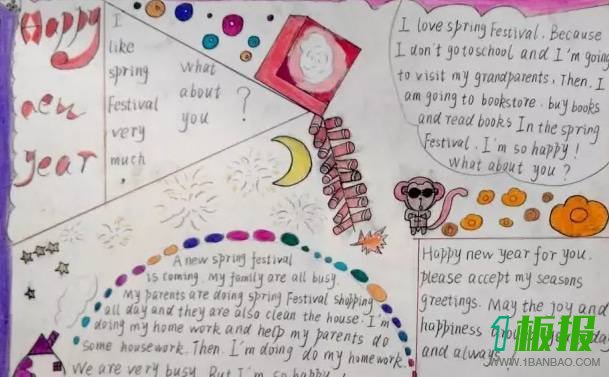 Happy
new
year
I
like
spring
Festival
very
much
.
what
about
you ?
I love spring Festival. Because
I don't go to school and I'm going
to visit my grandparents. Then. I
am going to bookstore. buy books
and read books In the spring
Festival. I'm so happy!
What about you ?
A new spring festival
is coming. My family are all busy.
My parents are doing spring Festival shopping
all day and they are also clean the house. I'm
doing my home work and help my parents do
some housework. Then. I'm doing do my homework.
We are very busy. But I'm so happy!
Happy new year for you.
please accept my seasons
greetings. May the joy and
happiness
and always!
板报
WWW.1BANBAO.COM